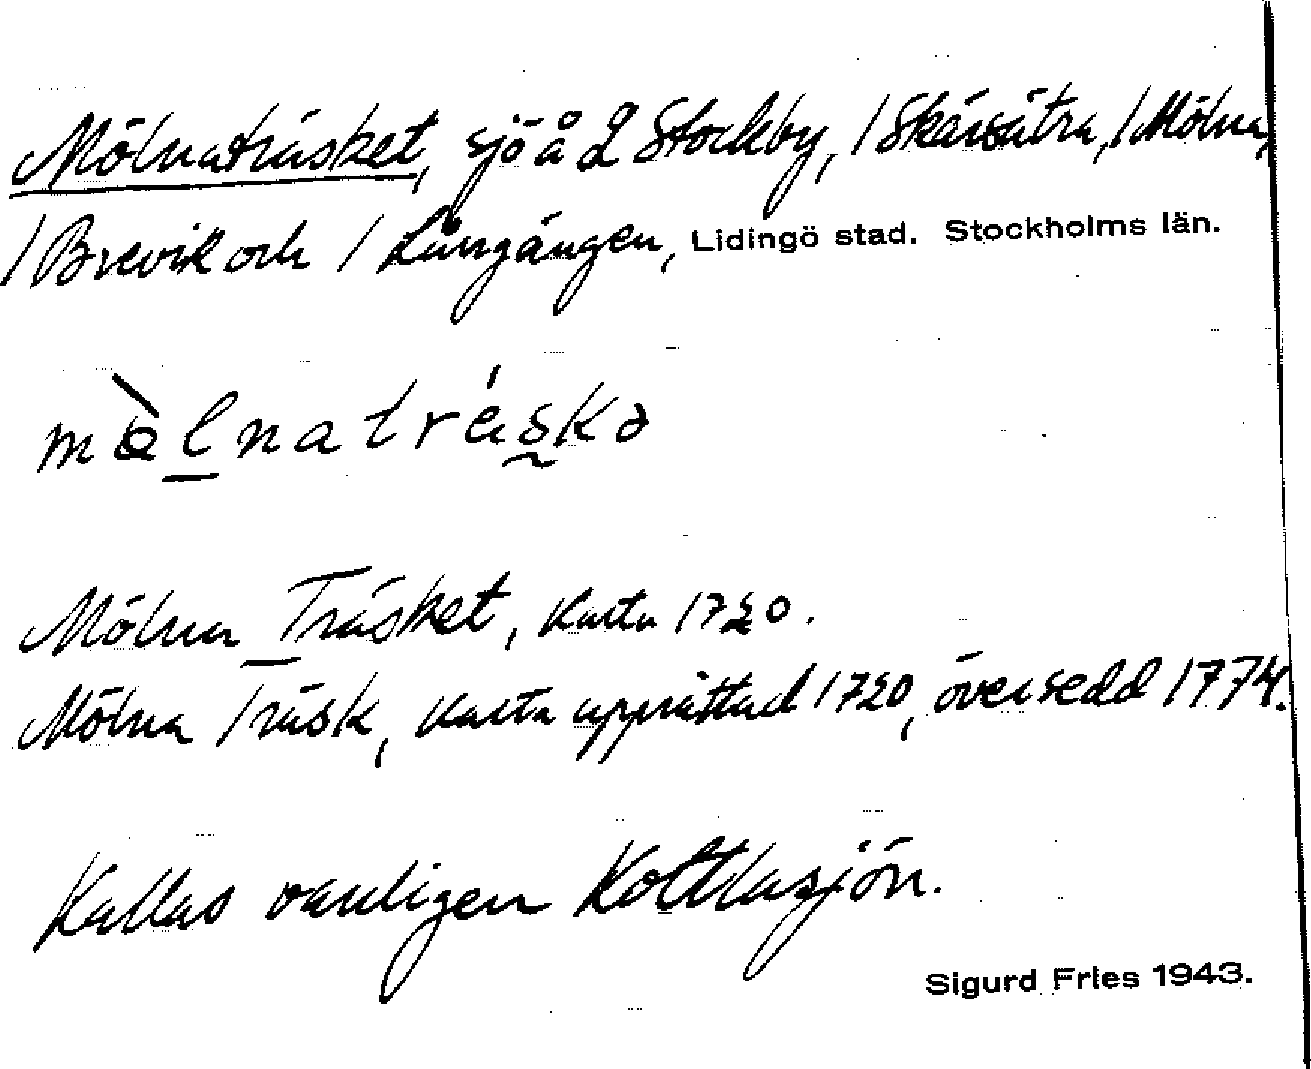 Mölnaträsket, sjö å 2 Stockby, 1 Skärsätra, 1 Mölna,
1 Brevik och 1 Långängen, Lidingö stad. Stockholms län.
mə̀lnatráskə
Mölna Träsket, Karta 1720.
Mölna Träsk, Karta upprättad 1720, översedd 1774.
Kallas vanligen Kottlasjön.
Sigurd Fries 1943.